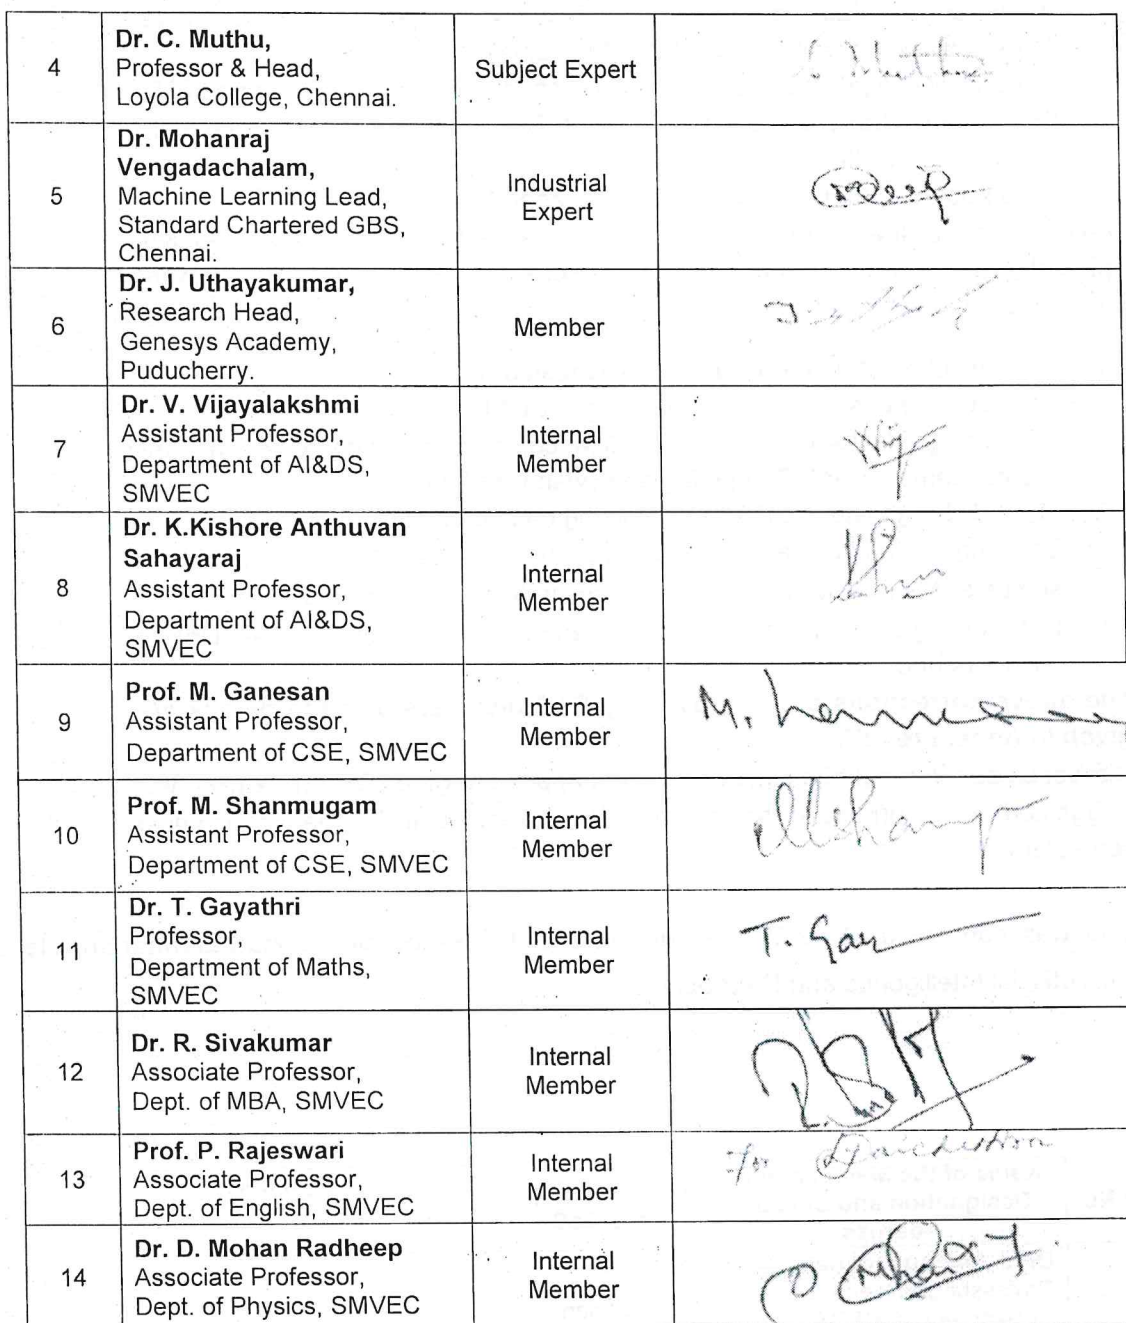 4
Dr. C. Muthu,
Professor & Head,
Loyola College, Chennai.
Subject Expert
5
Dr. Mohanraj
Vengadachalam,
Machine Learning Lead,
Standard Chartered GBS,
Chennai.
Industrial
Expert
6
Dr. J. Uthayakumar,
Research Head,
Genesys Academy,
Puducherry.
Member
7
Dr. V. Vijayalakshmi
Assistant Professor,
Department of AI&DS,
SMVEC
Internal
Member
8
Dr. K.Kishore Anthuvan
Sahayaraj
Assistant Professor,
Department of AI&DS,
SMVEC
Internal
Member
9
Prof. M. Ganesan
Assistant Professor,
Department of CSE, SMVEC
Internal
Member
10
Prof. M. Shanmugam
Assistant Professor,
Department of CSE, SMVEC
Internal
Member
11
Dr. T. Gayathri
Professor,
Department of Maths,
SMVEC
Internal
Member
T. Gay
12
Dr. R. Sivakumar
Associate Professor,
Dept. of MBA, SMVEC
Internal
Member
13
Prof. P. Rajeswari
Associate Professor,
Dept. of English, SMVEC
Internal
Member
14
Dr. D. Mohan Radheep
Associate Professor,
Dept. of Physics, SMVEC
Internal
Member